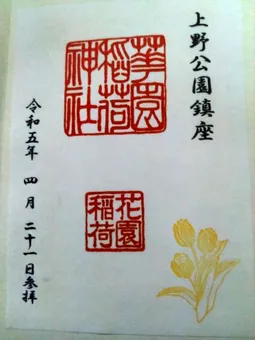 上野公園鎮座
華園稲荷神社
花園稲荷
令和五年 四月 二十一日参拝